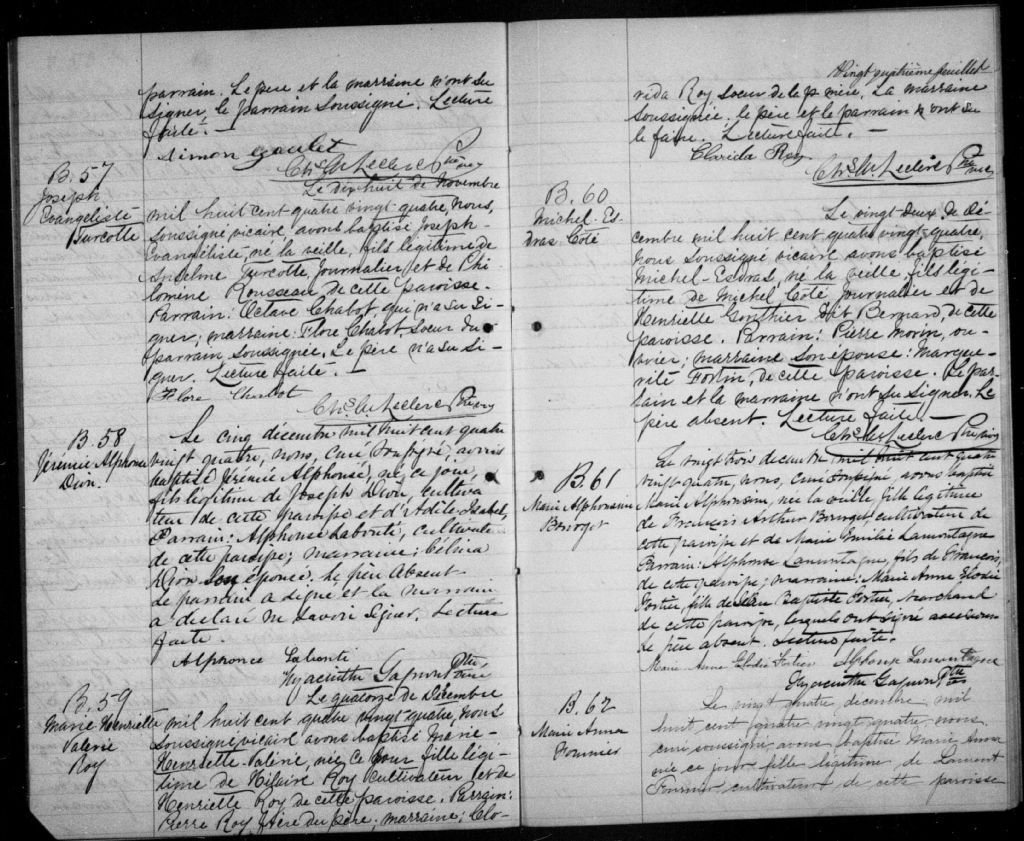 parrain. Le père et la marraine n'ont su
signer, le parrain soussigné. Lecture
faite. -
Simon Goulet
Chs. A. Leclerc Ptre Vic
B. 57
Joseph
Evangéliste
Turcotte
Le dix huit de Novembre
mil huit cent quatre vingt quatre, Nous,
soussigné vicaire avons baptisé Joseph-
Evangéliste, né la veille, fils légitime de
Anselme Turcotte, Journalier et de Phi-
lomène Rousseau de cette paroisse.
Parrain: Octave Chabot, qui n'a su si-
gner; marraine: Flore Chabot, soeur du
parrain soussignée. Le père n'a su si-
gner. Lecture faite. -
Flore Chabot
Chs. A. Leclerc Ptre Vic
B. 58
Jérémie Alphonse
Dion.
Le cinq décembre mil huit cent quatre
vingt quatre, nous, curé soussigné, avons
baptisé Jérémie Alphonse, né ce jour,
fils légitime de Joseph Dion, cultiva
teur de cette paroisse et d'Adèle
Parrain: Alphonse Labonté, cultivateur
de cette paroisse; marraine: Célina
Dion son épouse. Le père absent
Le parrain a signé et la marraine
a déclaré ne savoir signer. Lecture
faite.
Alphonce Labonté
Hyacinthe Gagnon Ptre curé
B. 59
Marie Henriette
Valérie
Roy
Le quatorze de Décembre
mil huit cent quatre vingt quatre, nous
soussigné vicaire avons baptisé Marie-
Henriette-Valérie, née ce jour fille légi-
time de Hilaire Roy cultivateur et de
Henriette Roy de cette paroisse. Parrain:
Pierre Roy, frère du père; marraine: Clo-
Vingt quatrième feuillet
rida Roy soeur de la p. mère. La marraine
soussignée. le père et le parrain n'ont su
le faire. Lecture faite. -
Clarida Roy
Chs. A. Leclerc Ptre Vic
B. 60
Michel-Es-
dras Côté
Le vingt-deux de Dé-
cembre mil huit cent quatre vingt quatre,
nous soussigné vicaire avons baptisé
Michel-Esdras, né la veille, fils légi-
time de Michel Côté Journalier et de
Henriette Gonthier dit Bernard, de cette
paroisse. Parrain: Pierre Morin, ou-
vrier; marraine son épouse: Margue-
rite Fortin, de cette paroisse. Le par-
rain et la marraine n'ont su signer. Le
père absent. Lecture faite. -
Chs. A. Leclerc Ptre Vic
B. 61
Marie Alphonsine
Bourget
Le vingt trois décembre mil huit cent quatre
vingt quatre, nous, curé soussigné, avons baptisé
Marie Alphonsine, née la veille, fille légitime
de François Arthur Bourget, cultivateur de
cette paroisse et de Marie Emélie Lamontagne
Parrain: Alphonse Lamontagne, fils de François,
de cette paroisse; marraine: Marie Anne Elodie
Fortier, fille de Jean Baptiste Fortier, Marchand
de cette paroisse, lesquels ont signé avec nous.
Le père absent. Lecture faite.
Marie Anne Elodie Fortier Alphonse Lamontagne
Hyacinthe Gagnon Ptre
B. 62
Marie Anna
Fournier
Le vingt quatre décembre mil
huit cent quatre vingt quatre nous
curé soussigné, avons baptisé Marie Anna
née ce jour fille légitime de Laurent
Fournier cultivateur de cette paroisse